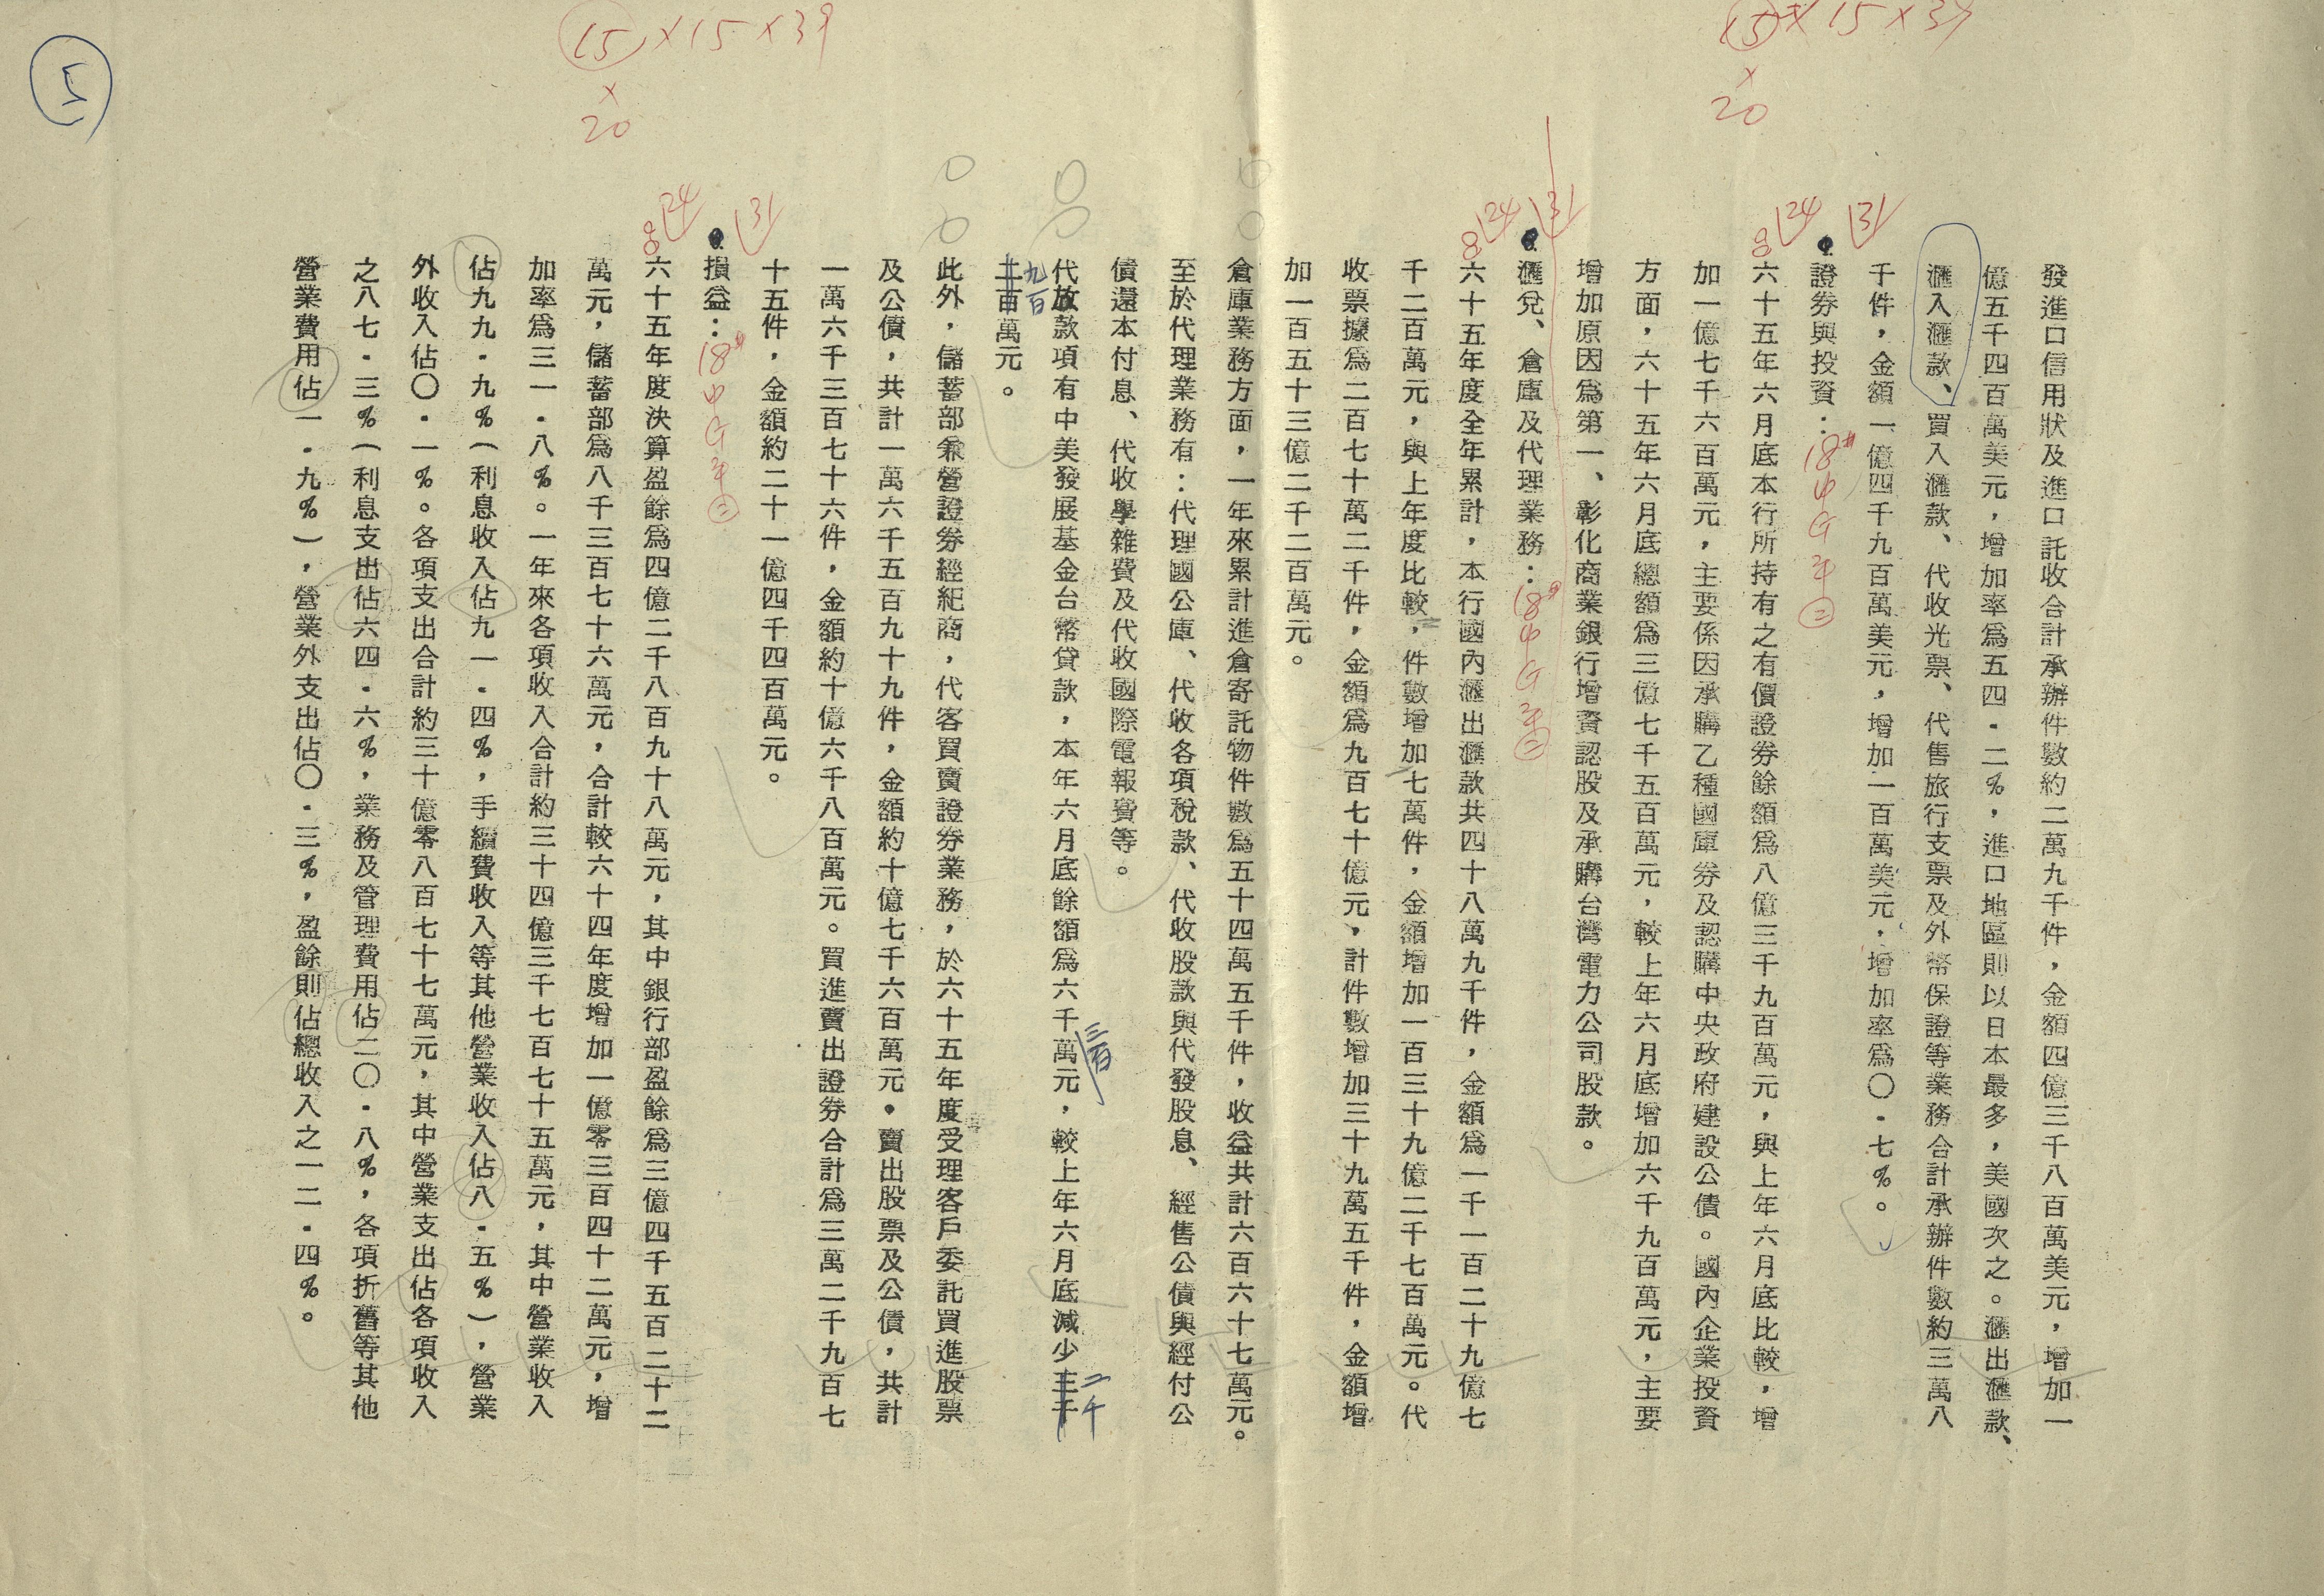 發進口信用狀及進口託收合計承辦件數約二萬九千件，金額四億三千八百萬美元，增加一
億五千四百萬美元，增加率為五四．二％，進口地區則以日本最多，美國次之。滙出滙款、
滙入滙款、買入滙款、代收光票、代售旅行支票及外幣保證等業務合計承辦件數約三萬八
千件，金額一億四千九百萬美元，增加一百萬美元，增加率為〇．七％。
證券與投資：
六十五年六月底本行所持有之有價證券餘額為八億三千九百萬元，與上年六月底比較，增
加一億七千六百萬元，主要係因承購乙種國庫券及認購中央政府建設公債。國內企業投資
方面，六十五年六月底總額為三億七千五百萬元，較上年六月底增加六千九百萬元，主要
增加原因為第一、彰化商業銀行增資認股及承購台灣電力公司股款。
滙兌、倉庫及代理業務：
六十五年度全年累計，本行國內滙出滙款共四十八萬九千件，金額為一千一百二十九億七
千二百萬元，與上年度比較，件數增加七萬件，金額增加一百三十九億二千七百萬元。代
收票據為二百七十萬二千件，金額為九百七十億元，計件數增加三十九萬五千件，金額增
加一百五十三億二千二百萬元。
倉庫業務方面，一年來累計進倉寄託物件數為五十四萬五千件，收益共計六百六十七萬元。
至於代理業務有：代理國公庫、代收各項稅款、代收股款與代發股息、經售公債與經付公
債還本付息、代收學雜費及代收國際電報費等。
代放款項有中美發展基金台幣貸款，本年六月底餘額為六千三百萬元，較上年六月底減少二千
九百萬元。
此外，儲蓄部兼營證券經紀商，代客買賣證券業務，於六十五年度受理客戶委託買進股票
及公債，共計一萬六千五百九十九件，金額約十億七千六百萬元。賣出股票及公債，共計
一萬六千三百七十六件，金額約十億六千八百萬元。買進賣出證券合計為三萬二千九百七
十五件，金額約二十一億四千四百萬元。
損益：
六十五年度決算盈餘為四億二千八百九十八萬元，其中銀行部盈餘為三億四千五百二十二
萬元，儲蓄部為八千三百七十六萬元，合計較六十四年度增加一億零三百四十二萬元，增
加率為三一．八％。一年來各項收入合計約三十四億三千七百七十五萬元，其中營業收入
佔九九．九％（利息收入佔九一．四％，手續費收入等其他營業收入佔八．五％），營業
外收入佔〇．一％。各項支出合計約三十億零八百七十七萬元，其中營業支出佔各項收入
之八七．三％（利息支出佔六四．六％，業務及管理費用佔二〇．八％，各項折舊等其他
營業費用佔一．九％），營業外支出佔〇．三％，盈餘則佔總收入之一二．四％。
5
15×15×39
×
20
15×15×39
×
20
24
31
8
18# 中G平㊁
24
31
8
18# 中G平㊁
24
31
8
18# 中G平㊁